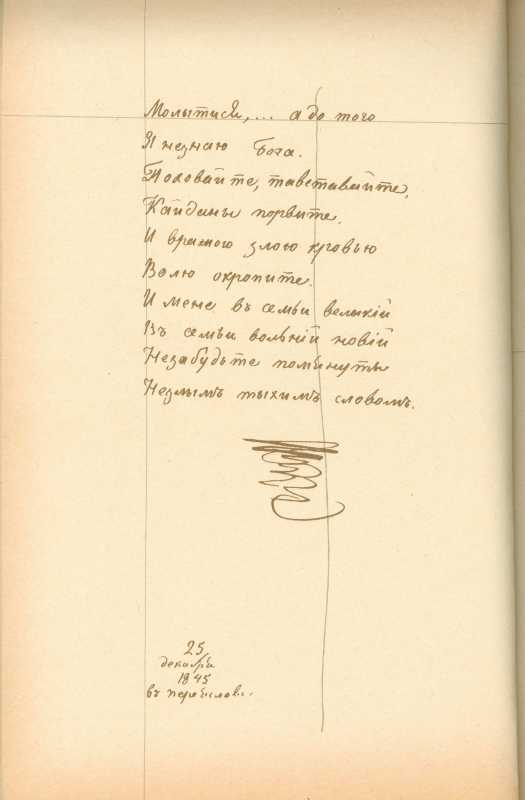 Молытися,... а до того
Я незнаю Бога.
Поховайте, тавставайте,
Кайданы порвите.
И вражою злою кровью
Волю окропите.
И мене въ семьи велыкій
Въ семьи вольній новій
Незабудьте помянуты
Незлымъ тыхимъ словомъ.
25
декабря
1845
въ